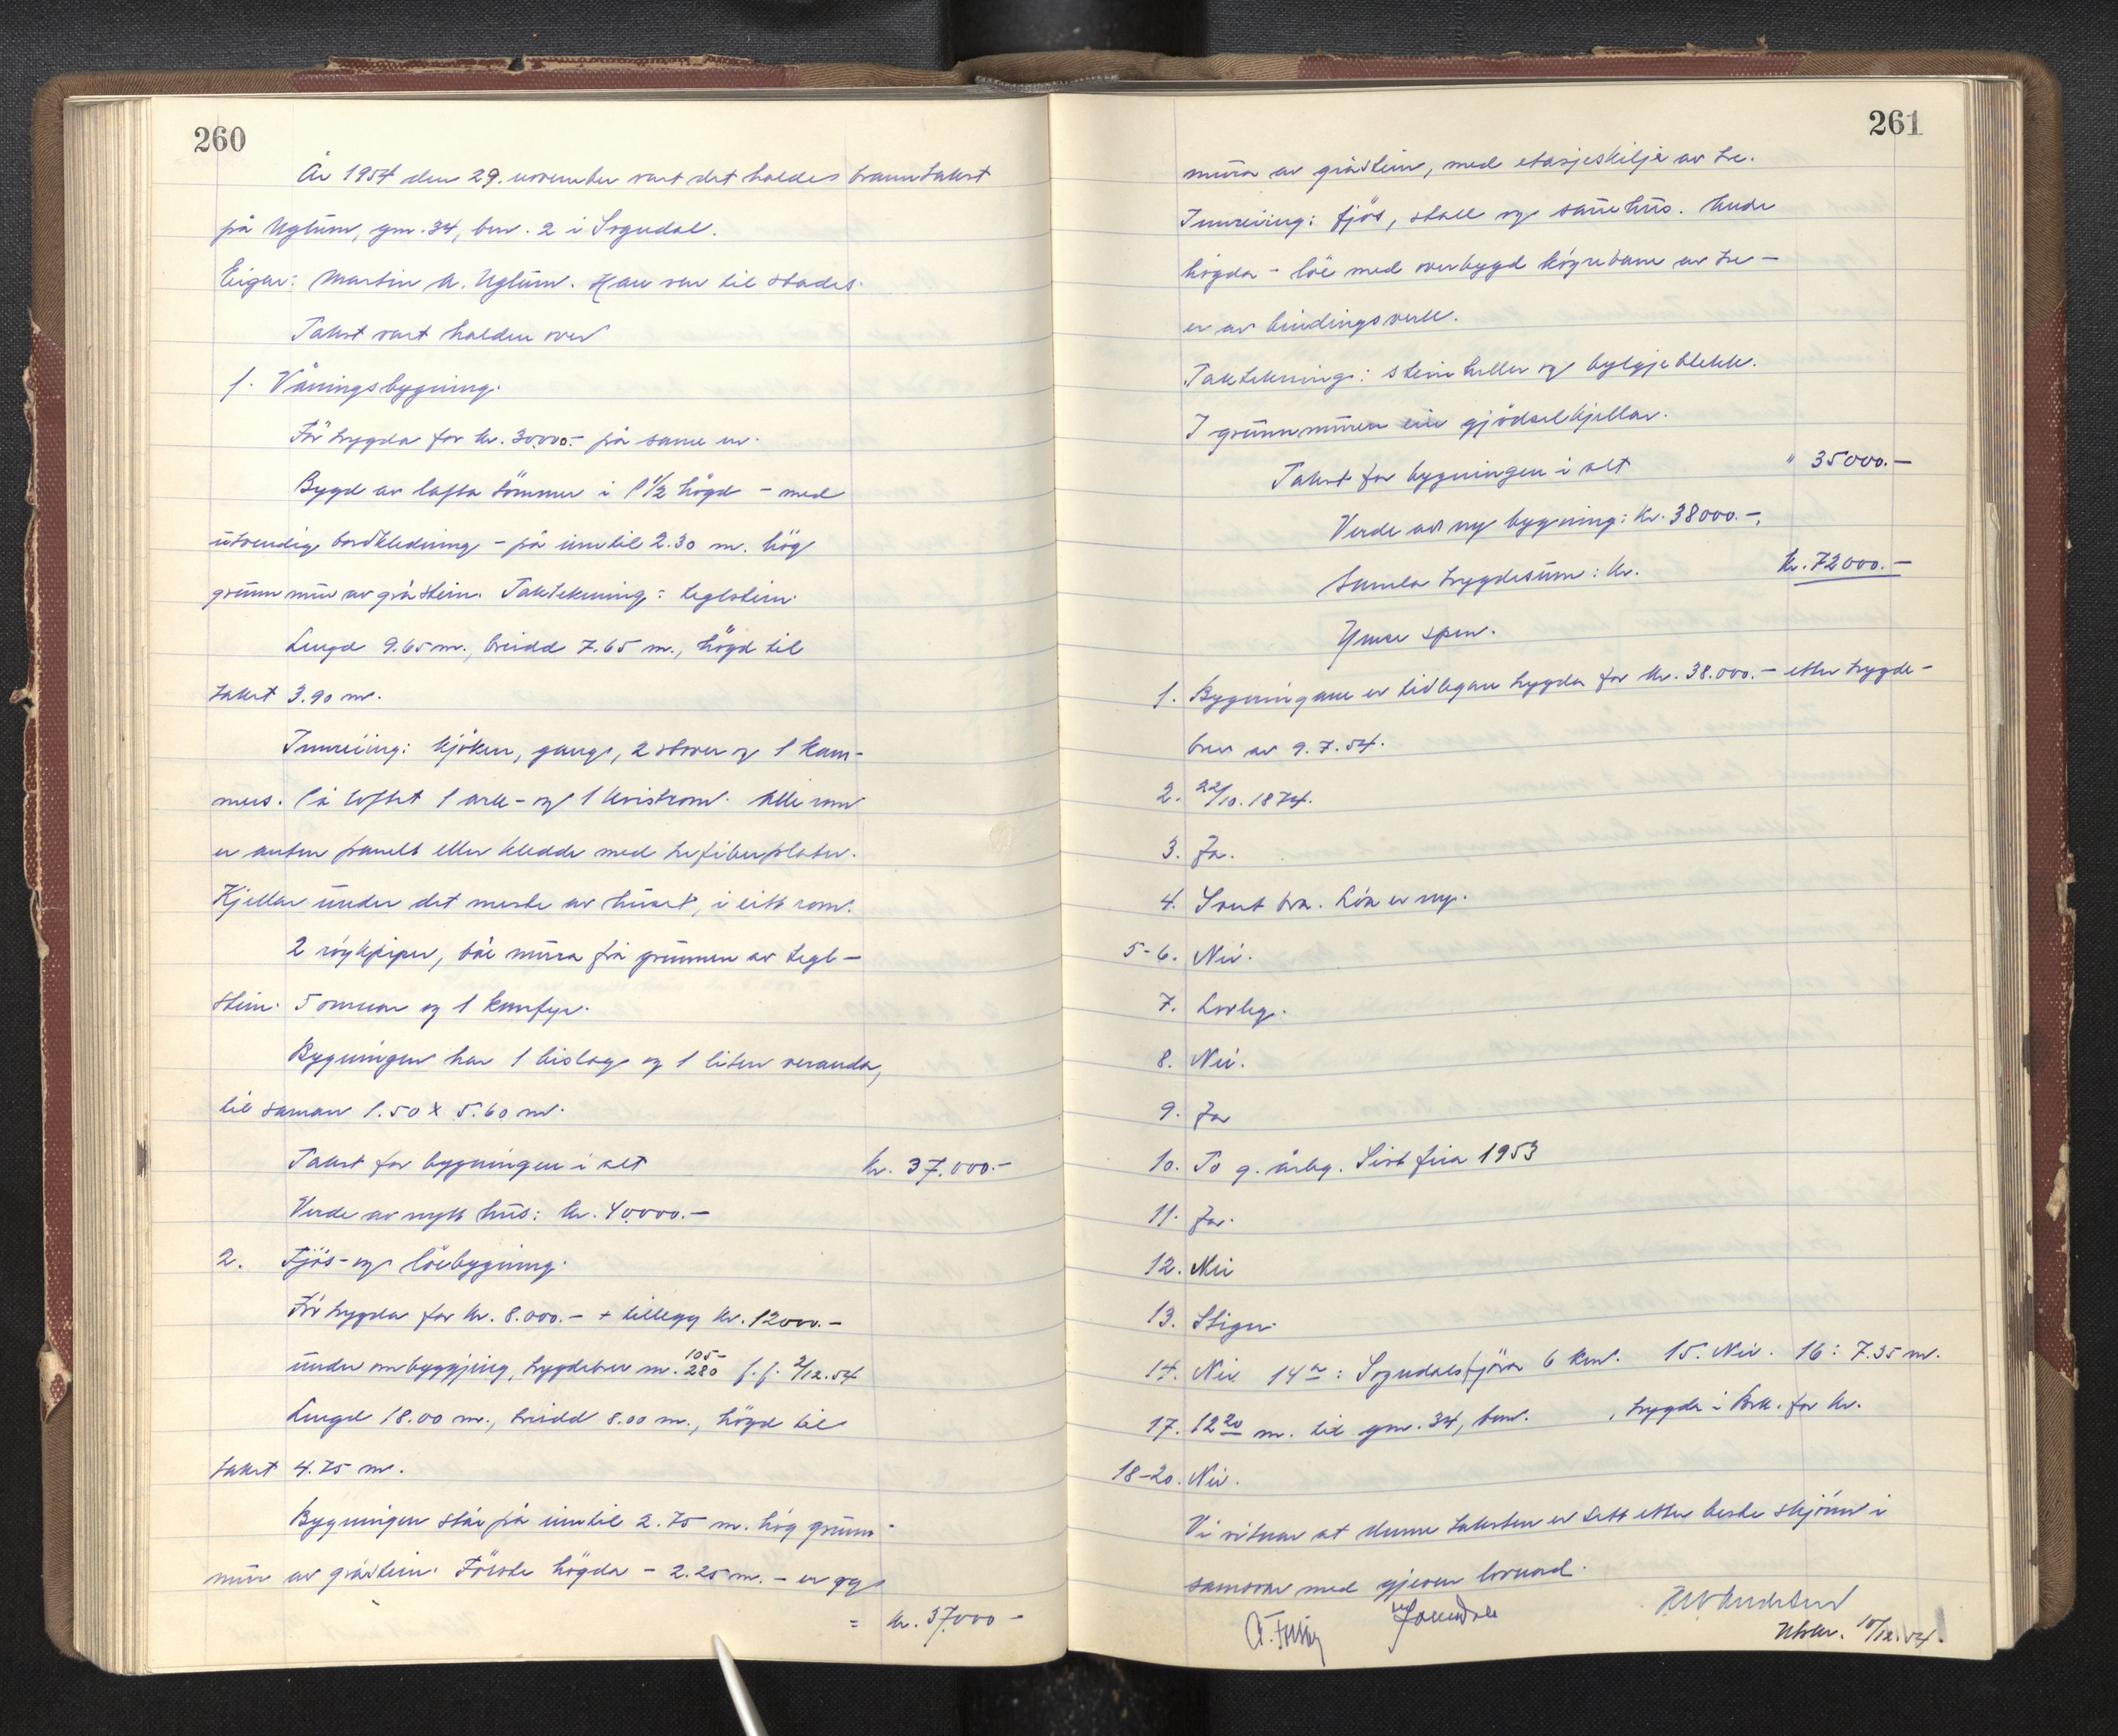 260
År 1954 den 29. november vart det halde branntakst
på Uglum, gnr. 34, bnr. 2 i Sogndal.
Eigar: Martin A. Uglum. Han var til stades.
Takst vart halden over
1. Våningsbygning.
Før trygda for kr. 30000.- på same nr.
Bygd av lafta tømmer i 1 1/2 høgd - med
utvendig bordkledning - på inntil 2.30 m. høg
grunnmur av gråstein. Taktekning: teglstein.
Lengd 9.65 m., breidd 7.65 m., høgd til
taket 3.90 m.
Innreiing: kjøken, gang, 2 stover og 1 kam-
mers. På loftet 1 ark- og 1 kvistrom. Alle rom
er anten panelt eller kledde med trefiberplater.
Kjellar under det meste av huset, i eitt rom.
2 røykpiper, båe mura frå grunnen av tegl-
stein. 5 omnar og 1 komfyr.
Bygningen har 1 bislag og 1 liten veranda,
til saman 1.50 x 5.60 m.
Takst for bygningen i alt kr. 37.000.-
Verde av nytt hus: kr. 40000.-
2. Fjøs- og løebygning.
Før trygda for kr. 8.000.- + tillegg kr. 12000.-
under ombyggjing, trygdebrev nr. 105-280 f.f. 2/12.54
Lengd 18.00 m., breidd 8.00 m., høgd til
taket 4.75 m.
Bygningen står på inntil 2.75 m. høg grunn-
mur av gråstein. Første høgda - 2.25 m. - er og
= kr. 37000-
261
mura av gråstein, med etasjeskilje av tre.
Innreiing: fjøs, stall og sauehus. Andre
høgda - løe med overbygd køyrebane av tre -
er av bindingsverk.
Taktekning: steinheller og bylgjeblekk.
I grunnmuren ein gjødselkjellar.
Takst for bygningen i alt " 35000.-
Verde av ny bygning: kr. 38000.-.
Samla trygdesum: kr. kr. 72000.-
Ymse spm.
1. Bygningane er tidlegare trygda for kr. 38.000.- etter trygde-
brev av 9.7.54.
2. 22/10.1874.
3. Ja.
4. Svert bra. Løa er ny.
5-6. Nei.
7. Lovleg.
8. Nei.
9. Ja
10. To g. årleg. Sist feia 1953
11. Ja.
12. Nei
13. Stigar
14. Nei 14a: Sogndalsfjøra 6 km. 15. Nei. 16: 7.35 m.
17. 12.20 m. til gnr. 34, bnr. , trygda i Brk. for kr.
18-20. Nei.
Vi vitnar at denne taksten er sett etter beste skjønn i
samsvar med gjeven lovnad.
Utskr. 10/12.54.